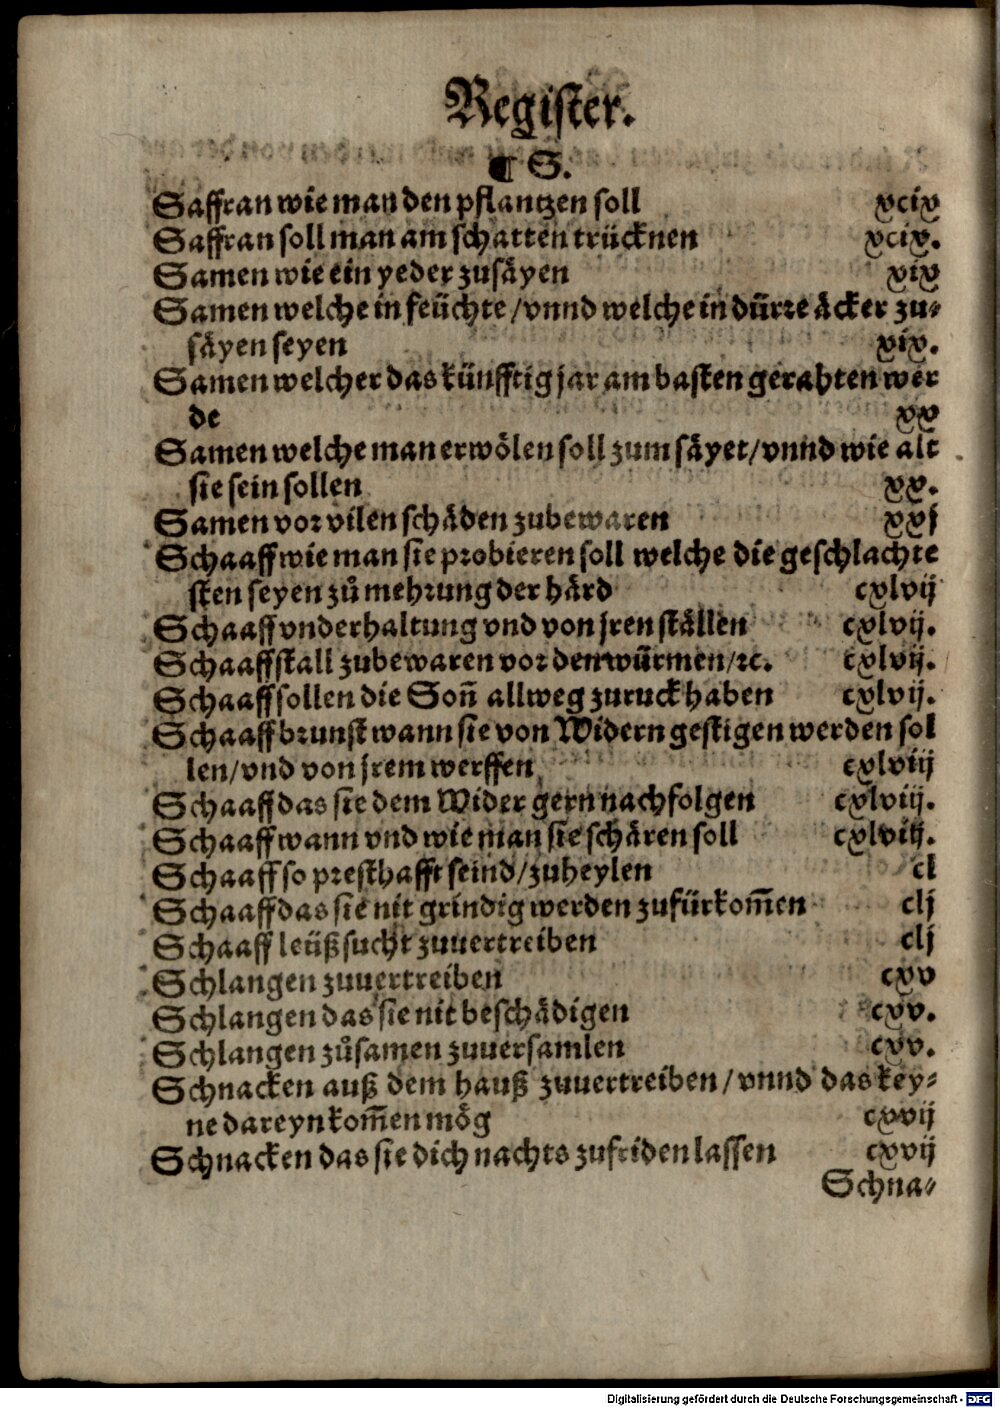 Register.
¶ S.
Saffran wie man den pflantzen soll xcix
Saffran soll man am schatten trücknen xcix.
Samen wie ein yeder zusäyen xix
Samen welche in feüchte/vnnd welche in dürre äcker zu-
säyen seyen xix.
Samen welcher das künfftig jar am basten gerahten wer
de xx
Samen welche man erwölen soll zum säyet/vnnd wie alt
sie sein sollen xx.
Samen vor vilen schäden zubewaren xxj
Schaaff wie man sie probieren soll welche die geschlachte
sten seyen zů mehrung der härd cxlvij
Schaaff vnderhaltung vnd von jren ställen cxlvij.
Schaaffstall zubewaren vor den würmen/ꝛc. cxlvij.
Schaaff sollen die Soñ allweg zuruck haben cxlvij.
Schaaff brunst wann sie von Widern gestigen werden sol
len/vnd von jrem werffen cxlviij
Schaaff das sie dem Wider gern nachfolgen cxlviij.
Schaaff wann vnd wie man sie schären soll cxlviij.
Schaaff so presthafft seind/zuheylen cl
Schaaff das sie nit grindig werden zufürkom̃en clj
Schaaff leüßsucht zuuertreiben clj
Schlangen zuuertreiben cxv
Schlangen das sie nit beschädigen cxv.
Schlangen zůsamen zuuersamlen cxv.
Schnacken auß dem hauß zuuertreiben/vnnd das key-
ne dareyn kom̃en mög cxvij
Schnacken das sie dich nachts zufriden lassen cxvij
Schna-
Digitalisierung gefördert durch die Deutsche Forschungsgemeinschaft - DFG